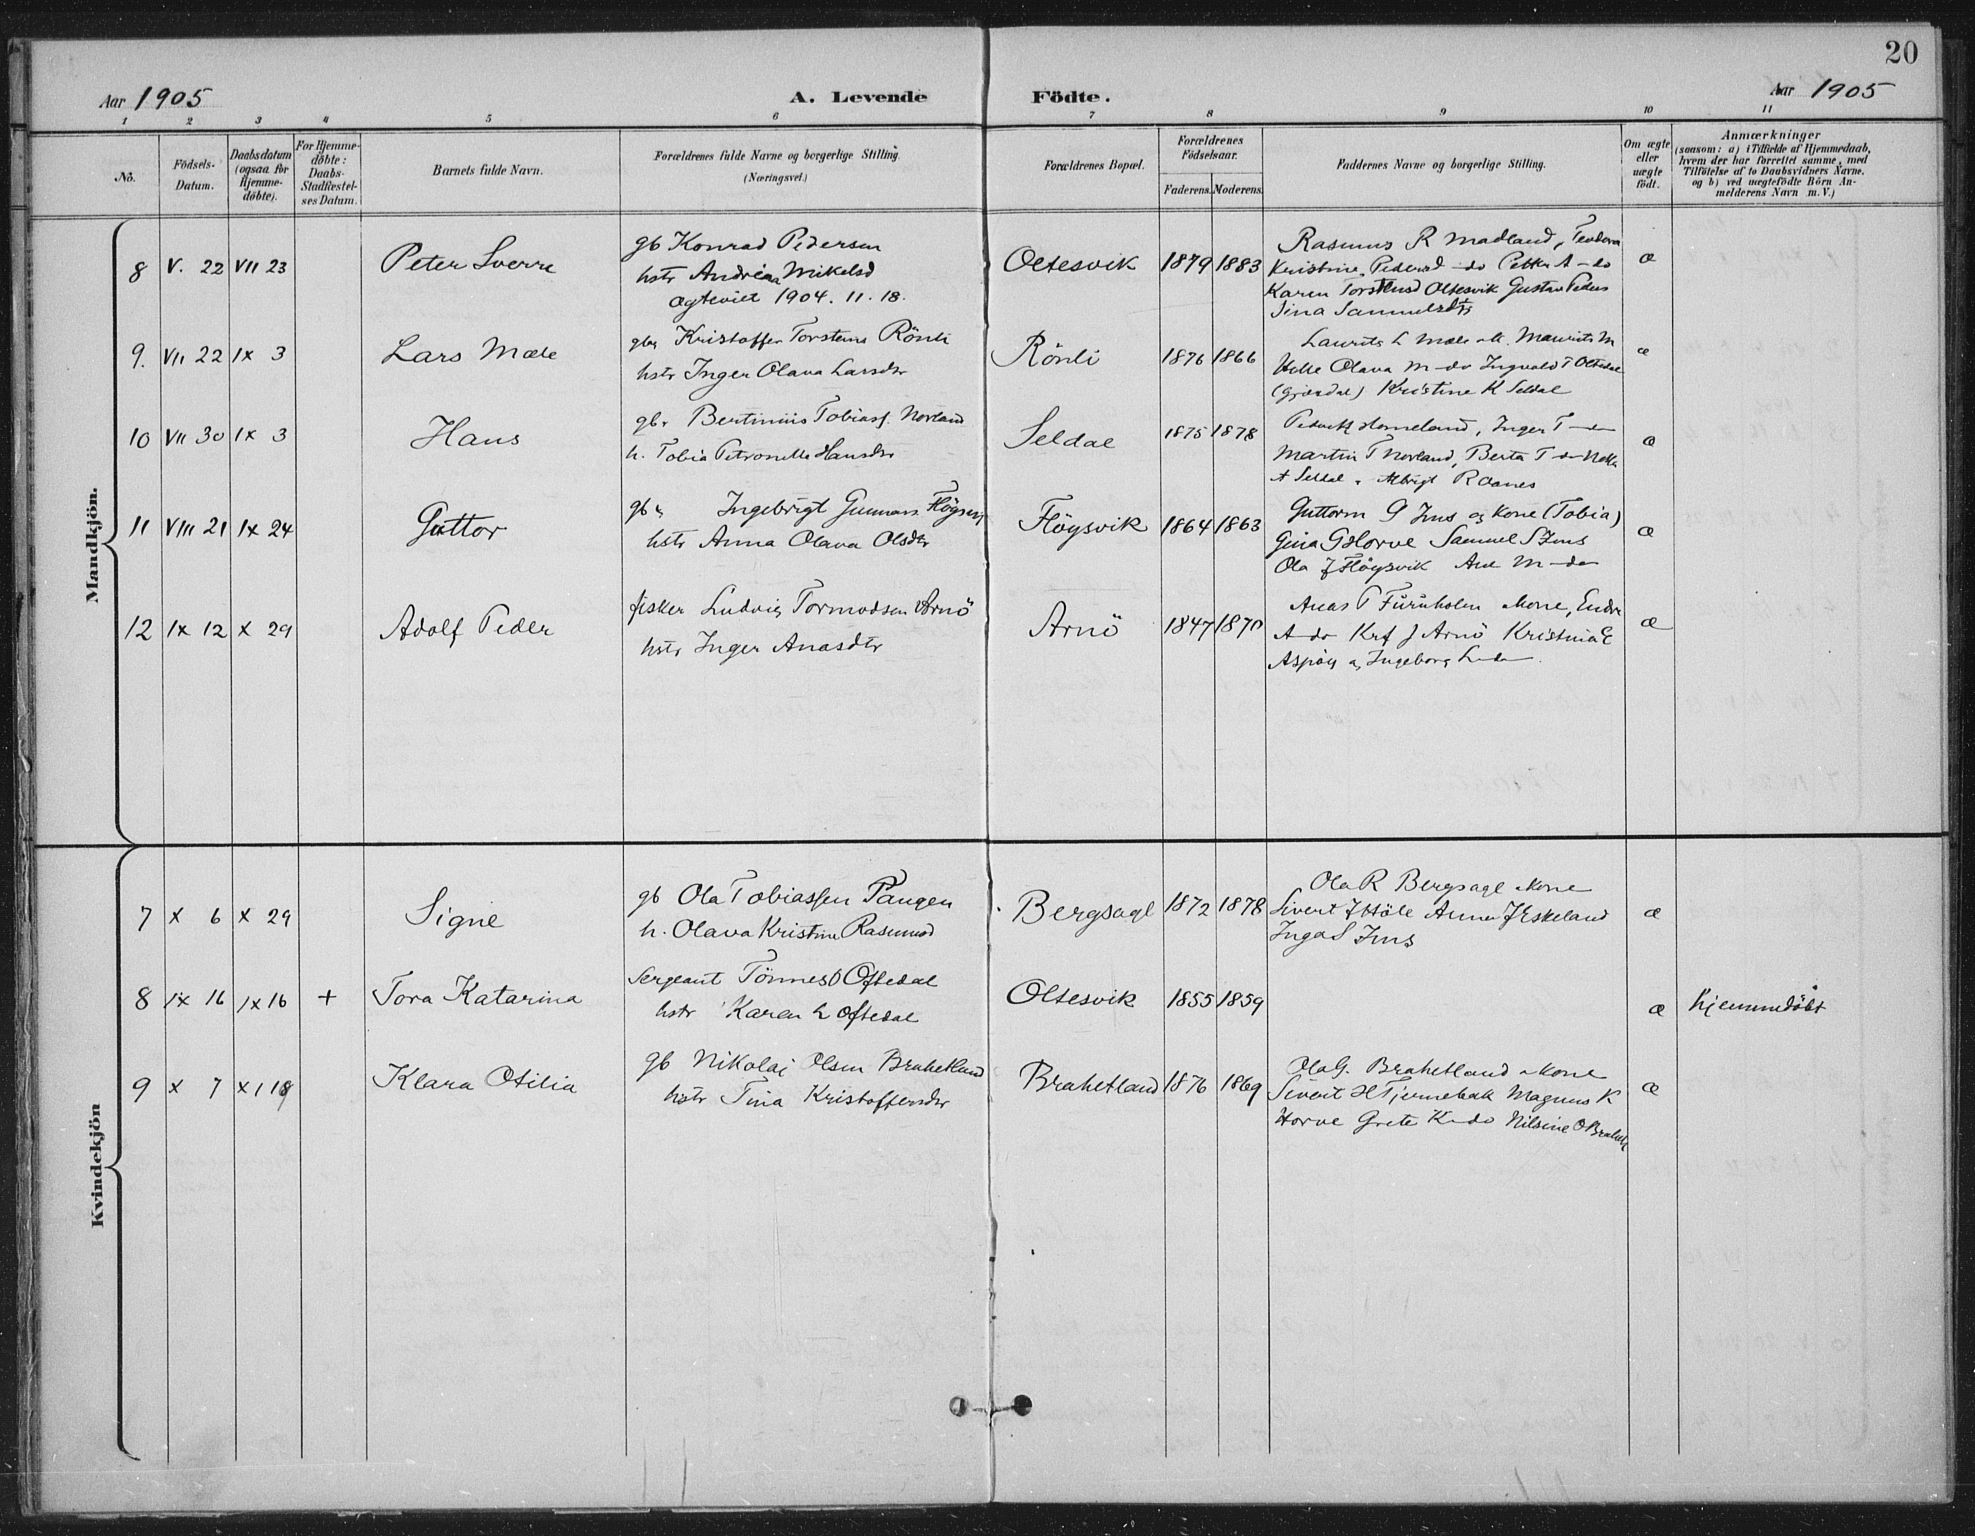 20
Aar 1905 A. Levende Födte. Aar 1905
1 2 3 4 5 6 7 8 9 10 11
No.
Födsels-
Datum.
Daabsdatum
(ogsaa for
Hjemme-
döbte).
For Hjemme-
döbte:
Daabs-
Stadfæstel-
ses Datum.
Barnets fulde Navn.
Forældrenes fulde Navne og borgerlige Stilling
(Næringsvei.)
Forældrenes Bopæl.
Forældrenes
Födselsaar.
Faderens. Moderens.
Faddernes Navne og borgerlige Stilling.
Om ægte
eller
uægte
födt.
Anmærkninger
(saasom: a) i Tilfælde af Hjemmedaab,
hvem der har forrettet samme, med
Tilföielse af to Daabsvidners Navne.
og b) ved uægtefödte Börn An-
melderens Navn m. V.)
Mandkjön.
8 V. 22 VII 23 Peter Sverre
gb Konrad Pedersen
hstr Andréa Mikelsd
ægteviet 1904. 11. 18.
Oltesvik 1879 1883
Rasmus R Madland, Teodora
Kristine Pedersd - do Petter A - do
Karen Torstensd Oltesvik Gustav Peders
Sina Samuelsdtr
æ
9. VII 22 IX 3 Lars Mæle
gbr Kristoffer Torstens Rönli
hstr Inger Olava Larsdtr
Rönli 1876 1866
Laurits L Mæle Maurits M
Helle Olava M - do Ingvald T Oltedal
(Gjesdal) Kristine K Seldal
æ
10 VII 30 IX 3 Hans
gbr Bertinius Tobiass. Norland
h. Tobia Petronelle Hansdtr
Seldal 1875 1878
Homeland, Inger T - do
Martin T Norland, Berta T - do
A Seldal
æ
11 VIII 21 IX 24 Guttor
gbr Ingebrigt Gunnars Flögsv
hstr Anna Olava Olsdtr
Flögsvik 1864 1863
Guttorm G Ims og Kone (Tobia)
Gina G Horve Samuel S Ims
Ola J Flögsvik M - do
æ
12 IX 12 X 29 Adolf Peder
fisker Ludvig Tormodsen Arnö
hstr Inger Anasdtr
Arnö 1847 1870
Anas T Furuholen Kone, Endre
A - do Krf J Arnö Kristina E
Aspöy og Ingeborg L - do
æ
Kvindekjön
7 X 6 X 29 Signe
gb Ola Tobiassen Tangen
h. Olava Kristine Rasmusd
Bergsagl 1872 1878
Ola R Bergsagl Kone
Sivert J Höle Anna J Eskeland
Inga S Ims
æ
8 IX 16 IX 16 + Tora Katarina
Sergeant Tönnes O Oftedal
hstr Karen L Oftedal
Oltesvik 1855 1859
æ Hjemmedöbt
9 X 7 XI 19 Klara Otilia
gb Nikolai Olsen Brahetland
hstr Tina Kristoffersdtr
Brahetland 1876 1869
Ola G. Brahetland Kone
Sivert H Tjernebak Magnus K
Horve Grete K - do Nilsine O Brahetl
æ